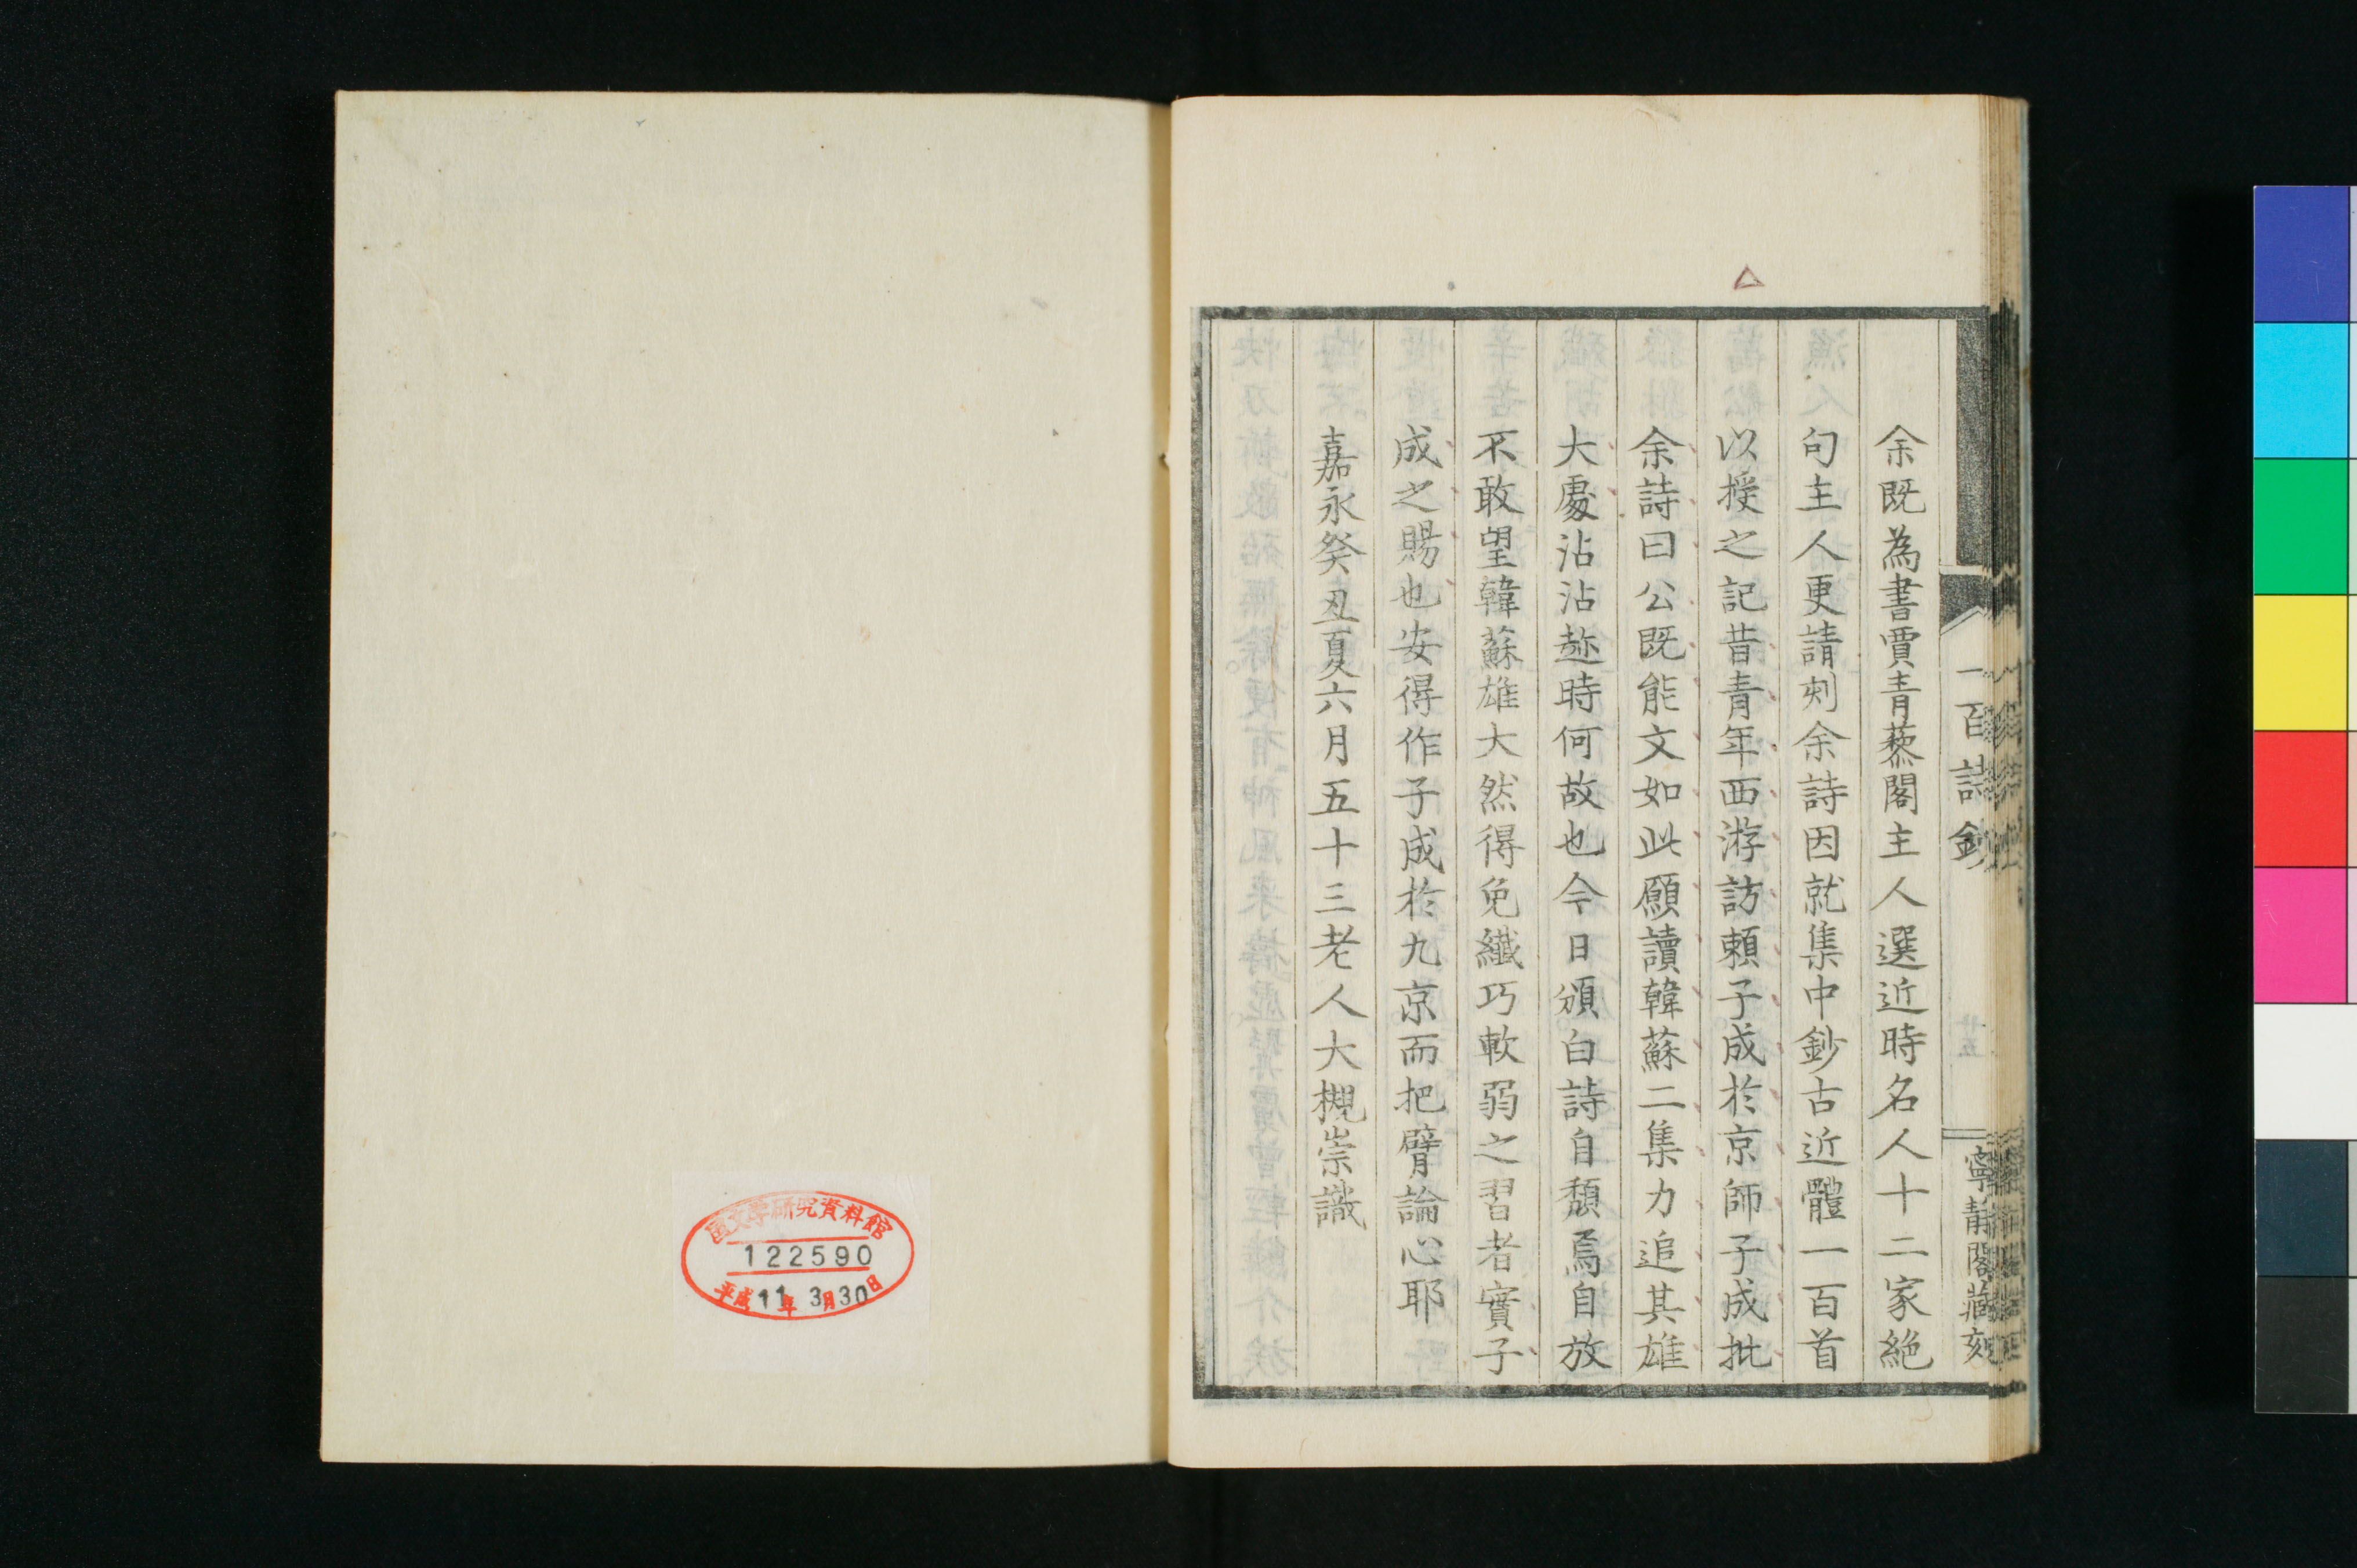 一百詩鈔
寧靜閣藏刻
余既為書賈青藜閣主人選近時名人十二家絕
句主人更請刻余詩因就集中鈔古近體一百首
以授之記昔青年西游訪賴子成於京師子成批
余詩曰公既能文如此願讀韓蘇二集力追其雄
大處沾沾趂時何故也今日頒白詩自頹焉自放
不敢望韓蘇雄大然得免纖巧軟弱之習者實子
成之賜也安得作子成於九京而把臂論心耶
嘉永癸丑夏六月五十三老人大槻崇識
国文学研究資料館
122590
平成11年3月30日